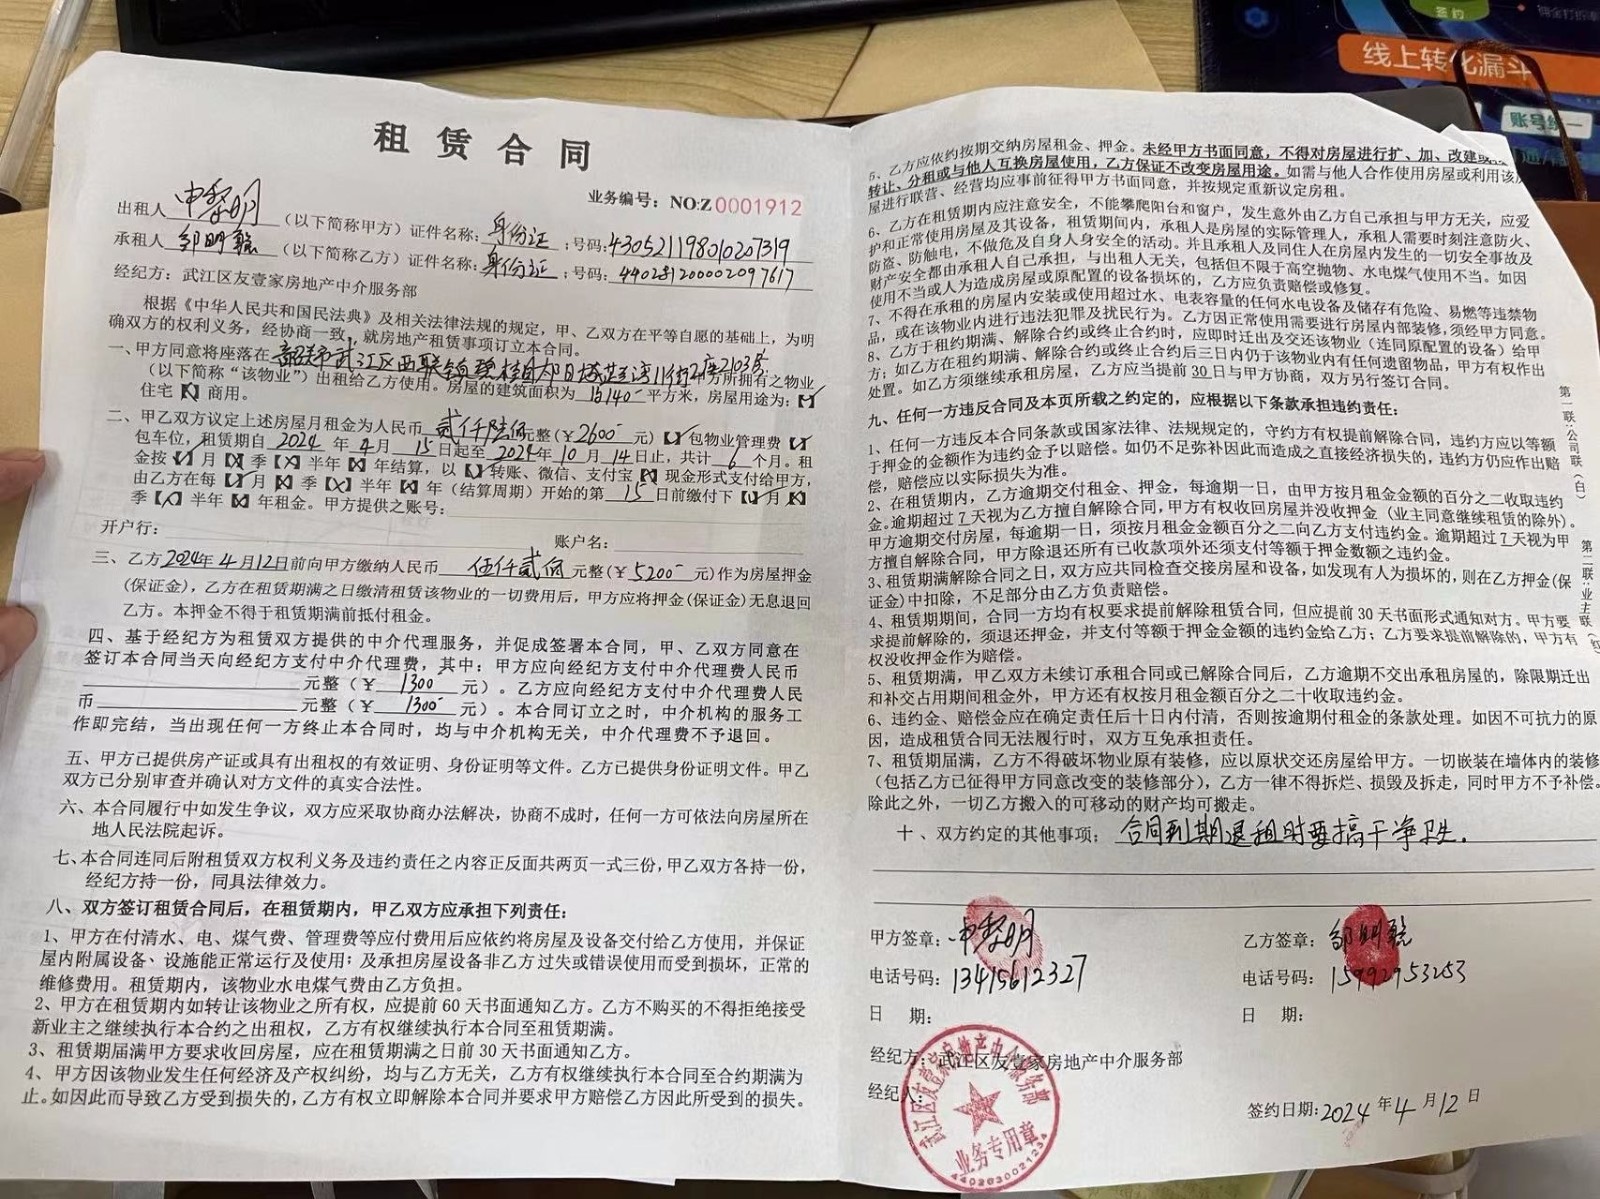 签约
线上转化漏斗
账号统一
租赁合同
业务编号：NO:Z0001912
出租人 申黎明 （以下简称甲方）证件名称：身份证 ；号码：430521198010207319
承租人 邹明 （以下简称乙方）证件名称：身份证 ；号码：
经纪方：武江区友壹家房地产中介服务部
根据《中华人民共和国民法典》及相关法律法规的规定，甲、乙双方在平等自愿的基础上，为明
确双方的权利义务，经协商一致，就房地产租赁事项订立本合同。
一、甲方同意将座落在 韶关市武江区西联镇碧桂园 2座2103房 方所拥有之物业
（以下简称“该物业”）出租给乙方使用。房屋的建筑面积为 140 平方米，房屋用途为：【✓】
住宅【✗】商用。
二、甲乙双方议定上述房屋月租金为人民币 贰仟陆佰 元整（¥2600 元）【✓】包物业管理费【✓】
包车位，租赁期自 2024 年 4 月 15 日起至 2024 年 10 月 14 日止，共计 6 个月。租
金按【✓】月【✗】季【✗】半年【✗】年结算，以【✓】转账、微信、支付宝【✗】现金形式支付给甲方，
由乙方在每【✓】月【✗】季【✗】半年【✗】年（结算周期）开始的第 15 日前缴付下【✓】月【✗】
季【✗】半年【✗】年租金。甲方提供之账号：
开户行： 账户名：
三、乙方 2024年4月12日 前向甲方缴纳人民币 伍仟贰佰 元整（¥5200 元）作为房屋押金
（保证金），乙方在租赁期满之日缴清租赁该物业的一切费用后，甲方应将押金（保证金）无息退回
乙方。本押金不得于租赁期满前抵付租金。
四、基于经纪方为租赁双方提供的中介代理服务，并促成签署本合同，甲、乙双方同意在
签订本合同当天向经纪方支付中介代理费，其中：甲方应向经纪方支付中介代理费人民币
元整（¥ 1300 元）。乙方应向经纪方支付中介代理费人民
币 元整（¥ 1300 元）。本合同订立之时，中介机构的服务工
作即完结，当出现任何一方终止本合同时，均与中介机构无关，中介代理费不予退回。
五、甲方已提供房产证或具有出租权的有效证明、身份证明等文件。乙方已提供身份证明文件。甲乙
双方已分别审查并确认对方文件的真实合法性。
六、本合同履行中如发生争议，双方应采取协商办法解决，协商不成时，任何一方可依法向房屋所在
地人民法院起诉。
七、本合同连同后附租赁双方权利义务及违约责任之内容正反面共两页一式三份，甲乙双方各持一份，
经纪方持一份，同具法律效力。
八、双方签订租赁合同后，在租赁期内，甲乙双方应承担下列责任：
1、甲方在付清水、电、煤气费、管理费等应付费用后应依约将房屋及设备交付给乙方使用，并保证
屋内附属设备、设施能正常运行及使用；及承担房屋设备非乙方过失或错误使用而受到损坏，正常的
维修费用。租赁期内，该物业水电煤气费由乙方负担。
2、甲方在租赁期内如转让该物业之所有权，应提前60天书面通知乙方。乙方不购买的不得拒绝接受
新业主之继续执行本合约之出租权，乙方有权继续执行本合同至租赁期满。
3、租赁期届满甲方要求收回房屋，应在租赁期满之日前30天书面通知乙方。
4、甲方因该物业发生任何经济及产权纠纷，均与乙方无关，乙方有权继续执行本合同至合约期满为
止。如因此而导致乙方受到损失的，乙方有权立即解除本合同并要求甲方赔偿乙方因此所受到的损失。
5、乙方应依约按期交纳房屋租金、押金。未经甲方书面同意，不得对房屋进行扩、加、改建或
转让、分租或与他人互换房屋使用，乙方保证不改变房屋用途。如需与他人合作使用房屋或利用该房
屋进行联营、经营均应事前征得甲方书面同意，并按规定重新议定房租。
6、乙方在租赁期内应注意安全，不能攀爬阳台和窗户，发生意外由乙方自己承担与甲方无关，应爱
护和正常使用房屋及其设备，租赁期间内，承租人是房屋的实际管理人，承租人需要时刻注意防火、
防盗、防触电，不做危及自身人身安全的活动。并且承租人及同住人在房屋内发生的一切安全事故及
财产安全都由承租人自己承担，与出租人无关，包括但不限于高空抛物、水电煤气使用不当。如因
使用不当或人为造成房屋或原配置的设备损坏的，乙方应负责赔偿或修复。
7、不得在承租的房屋内安装或使用超过水、电表容量的任何水电设备及储存有危险、易燃等违禁物
品，或在该物业内进行违法犯罪及扰民行为。乙方因正常使用需要进行房屋内部装修，须经甲方同意。
8、乙方于租约期满、解除合约或终止合约时，应即时迁出及交还该物业（连同原配置的设备）给甲
方；如乙方在租约期满、解除合约或终止合约后三日内仍于该物业内有任何遗留物品，甲方有权作出
处置。如乙方须继续承租房屋，乙方应当提前30日与甲方协商，双方另行签订合同。
九、任何一方违反合同及本页所载之约定的，应根据以下条款承担违约责任：
1、任何一方违反本合同条款或国家法律、法规规定的，守约方有权提前解除合同，违约方应以等额
于押金的金额作为违约金予以赔偿。如仍不足弥补因此而造成之直接经济损失的，违约方仍应作出赔
偿，赔偿应以实际损失为准。
2、在租赁期内，乙方逾期交付租金、押金，每逾期一日，由甲方按月租金金额的百分之二收取违约
金。逾期超过7天视为乙方擅自解除合同，甲方有权收回房屋并没收押金（业主同意继续租赁的除外）。
甲方逾期交付房屋，每逾期一日，须按月租金金额百分之二向乙方支付违约金。逾期超过7天视为甲
方擅自解除合同，甲方除退还所有已收款项外还须支付等额于押金数额之违约金。
3、租赁期满解除合同之日，双方应共同检查交接房屋和设备，如发现有人为损坏的，则在乙方押金（保
证金）中扣除，不足部分由乙方负责赔偿。
4、租赁期期间，合同一方均有权要求提前解除租赁合同，但应提前30天书面形式通知对方。甲方要
求提前解除的，须退还押金，并支付等额于押金金额的违约金给乙方；乙方要求提前解除的，甲方有
权没收押金作为赔偿。
5、租赁期满，甲乙双方未续订承租合同或已解除合同后，乙方逾期不交出承租房屋的，除限期迁出
和补交占用期间租金外，甲方还有权按月租金额百分之二十收取违约金。
6、违约金、赔偿金应在确定责任后十日内付清，否则按逾期付租金的条款处理。如因不可抗力的原
因，造成租赁合同无法履行时，双方互免承担责任。
7、租赁期届满，乙方不得破坏物业原有装修，应以原状交还房屋给甲方。一切嵌装在墙体内的装修
（包括乙方已征得甲方同意改变的装修部分），乙方一律不得拆烂、损毁及拆走，同时甲方不予补偿。
除此之外，一切乙方搬入的可移动的财产均可搬走。
十、双方约定的其他事项：合同到期退租时要搞干净卫生.
第一联：公司联（白）
第二联：业主联（红）
甲方签章：申黎明 乙方签章：邹明
电话号码：13415612327 电话号码：15992953253
日 期： 日 期：
经纪方：武江区友壹家房地产中介服务部
经纪人：
武江区友壹家房地产中介服务部
业务专用章
签约日期：2024 年 4 月 12 日